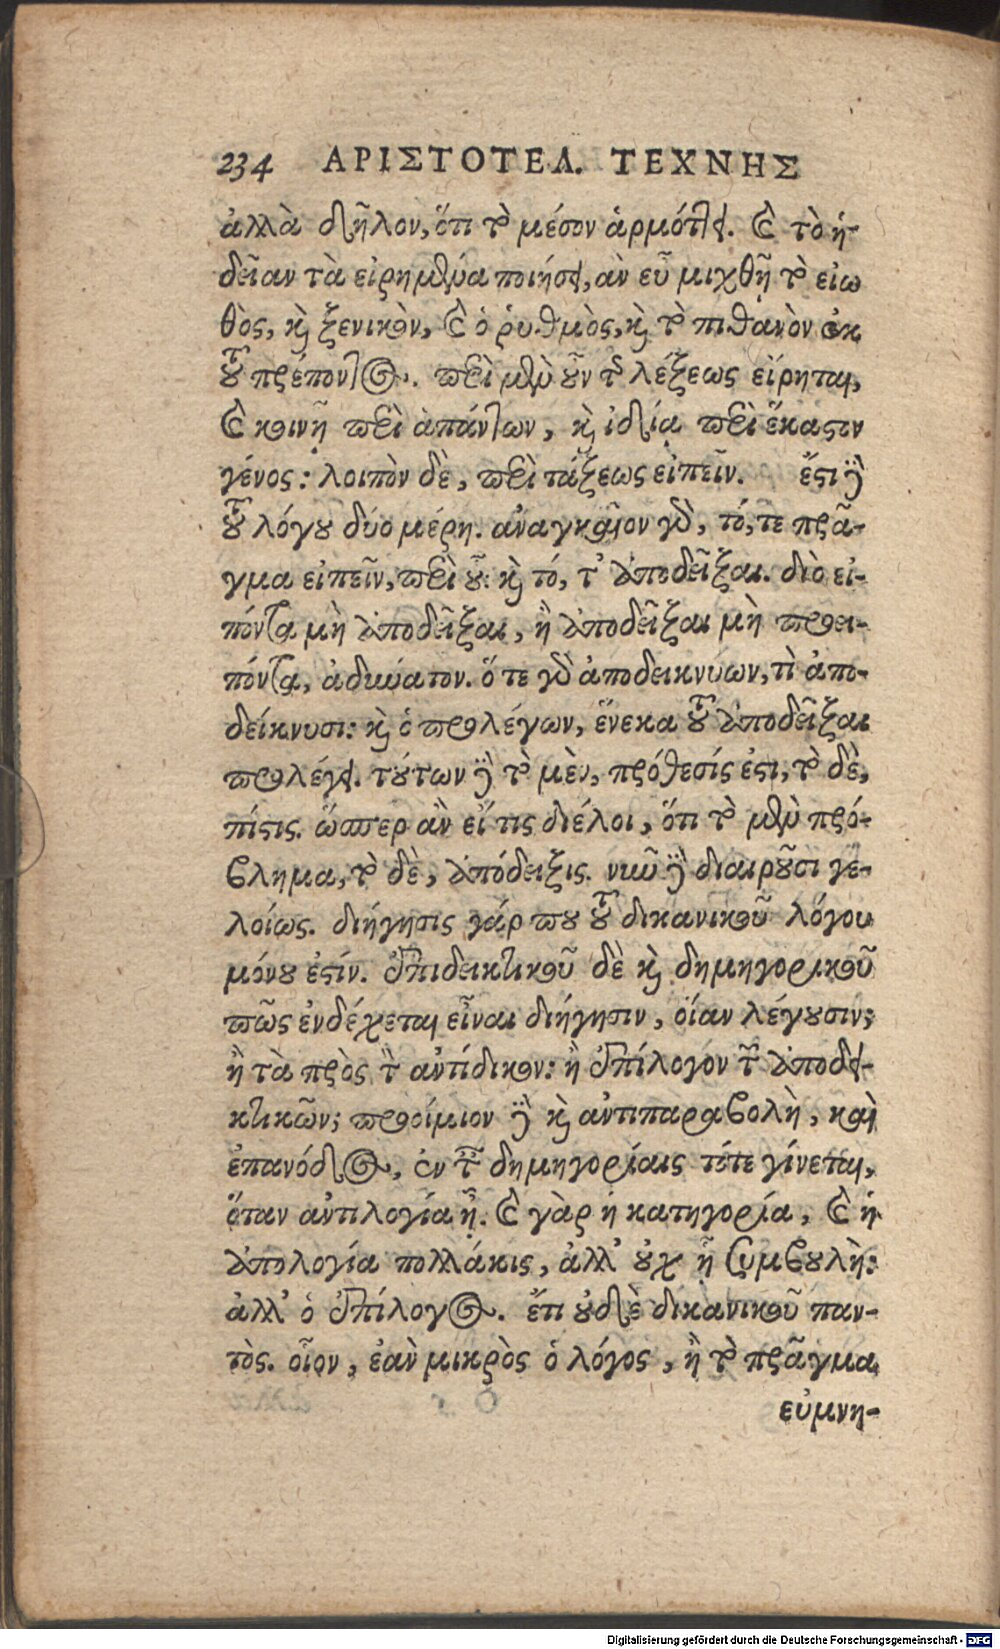 234 ΑΡΙΣΤΟΤΕΛ. ΤΕΧΝΗΣ
ἀλλὰ δῆλον, ὅτι τὸ μέσον ἁρμότει. καὶ τὸ ἡ-
δεῖαν τὰ εἰρημένα ποιήσει, ἂν εὖ μιχθῇ τὸ εἰω
θὸς, καὶ ξενικὸν, καὶ ὁ ῥυθμὸς, καὶ τὸ πιθανὸν ἐκ
τοῦ πρέποντος. περὶ μὲν οὖν τῆς λέξεως εἴρηται,
καὶ κοινῇ περὶ ἁπάντων, καὶ ἰδίᾳ περὶ ἕκαστον
γένος: λοιπὸν δὲ, περὶ τάξεως εἰπεῖν. ἔστι δὲ
τοῦ λόγου δύο μέρη. ἀναγκαῖον γὰρ, τό, τε πρᾶ-
γμα εἰπεῖν, περὶ οὗ: καὶ τό, τ' ἀποδεῖξαι. διὸ εἰ-
πόντα μὴ ἀποδεῖξαι, ἢ ἀποδεῖξαι μὴ προει-
πόντα, ἀδύνατον. ὅ τε γὰρ ἀποδεικνύων, τὶ ἀπο-
δείκνυσι: καὶ ὁ προλέγων, ἕνεκα τοῦ ἀποδεῖξαι
προλέγει. τούτων δὲ τὸ μὲν, πρόθεσίς ἐστι, τὸ δὲ,
πίστις. ὥσπερ ἂν εἴ τις διέλοι, ὅτι τὸ μὲν πρό-
βλημα, τὸ δὲ, ἀπόδειξις. νῦν δὲ διαιροῦσι γε-
λοίως. διήγησις γάρ που τοῦ δικανικοῦ λόγου
μόνου ἐστίν. ἐπιδεικτικοῦ δὲ καὶ δημηγορικοῦ
πῶς ἐνδέχεται εἶναι διήγησιν, οἵαν λέγουσιν;
ἢ τὰ πρὸς τὸν ἀντίδικον: ἢ ἐπίλογον τῶν ἀποδει-
κτικῶν; προοίμιον δὲ καὶ ἀντιπαραβολὴ, καὶ
ἐπανόδος, ἐν ταῖς δημηγορίαις τότε γίνεται,
ὅταν ἀντιλογία ᾖ. καὶ γὰρ ἡ κατηγορία, καὶ ἡ
ἀπολογία πολλάκις, ἀλλ' οὐχ ᾗ συμβουλὴ:
ἀλλ' ὁ ἐπίλογος. ἔτι οὐδὲ δικανικοῦ παν-
τὸς. οἷον, ἐὰν μικρὸς ὁ λόγος, ἢ τὸ πρᾶγμα
εὐμνη-
Digitalisierung gefördert durch die Deutsche Forschungsgemeinschaft - DFG